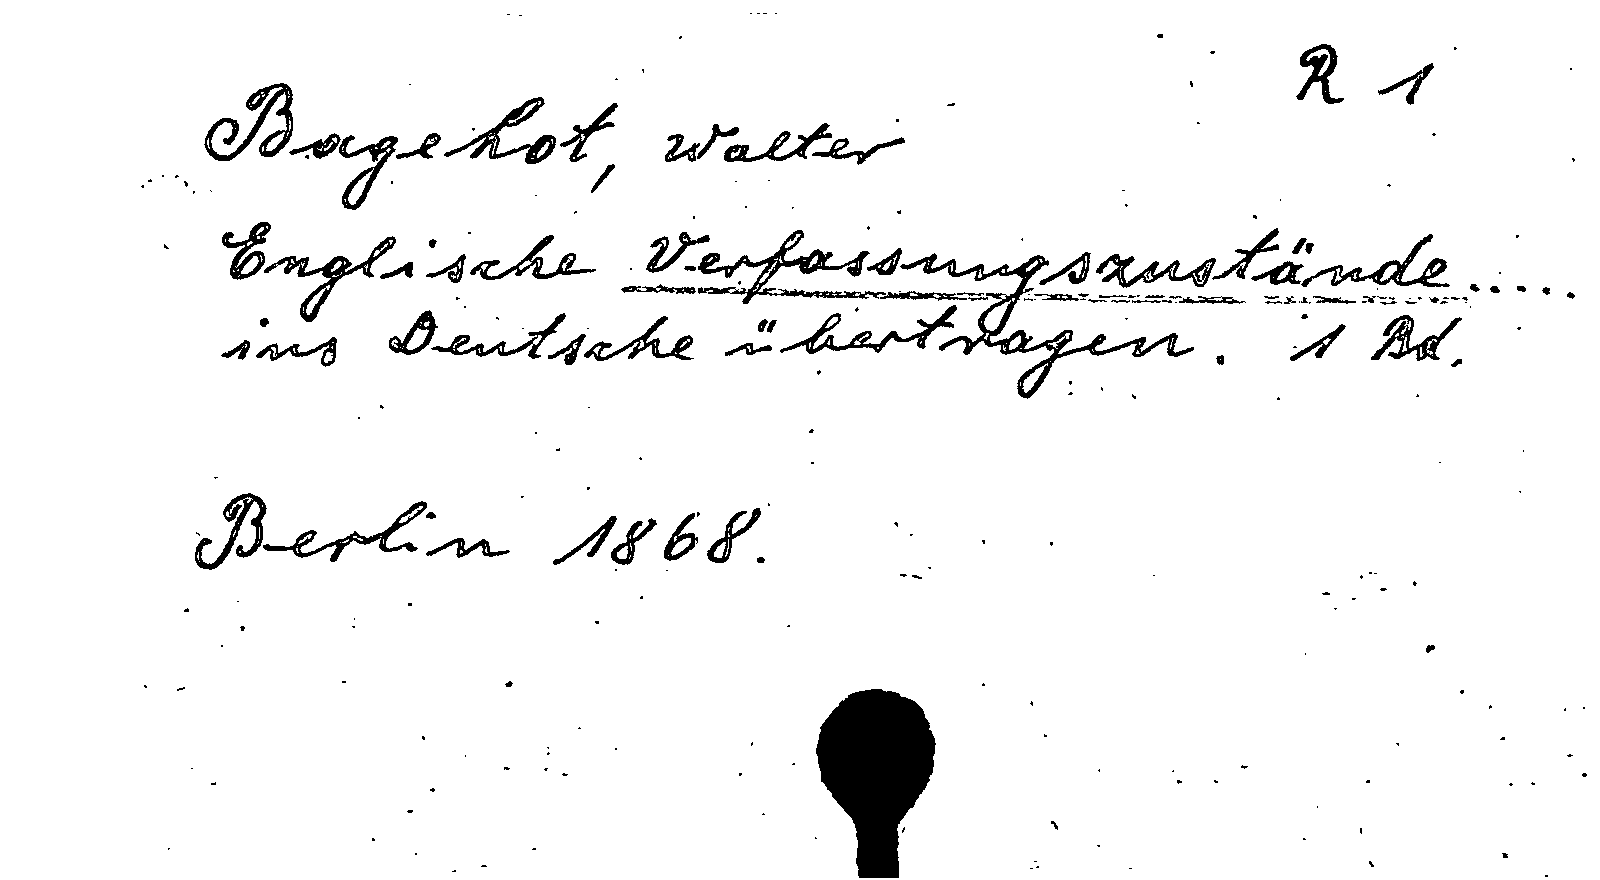 R 1
Bagehot, Walter
Englische Verfassungszustände.....
ins Deutsche übertragen. 1 Bd.
Berlin 1868.